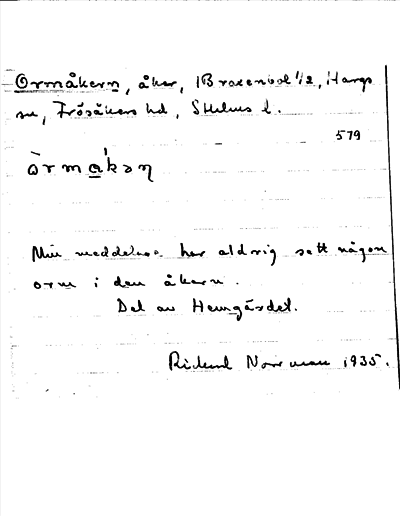 Ormåkern, åker, 1B Braxenbol 1/2, Hargs
sn, Frösåkers hd, Sthlms l.
579
òrma̲'kəɳ
Min meddelare har aldrig sett någon
orm i den åkern.
Del av Hemgärdet.
Rickard Norrman 1935.